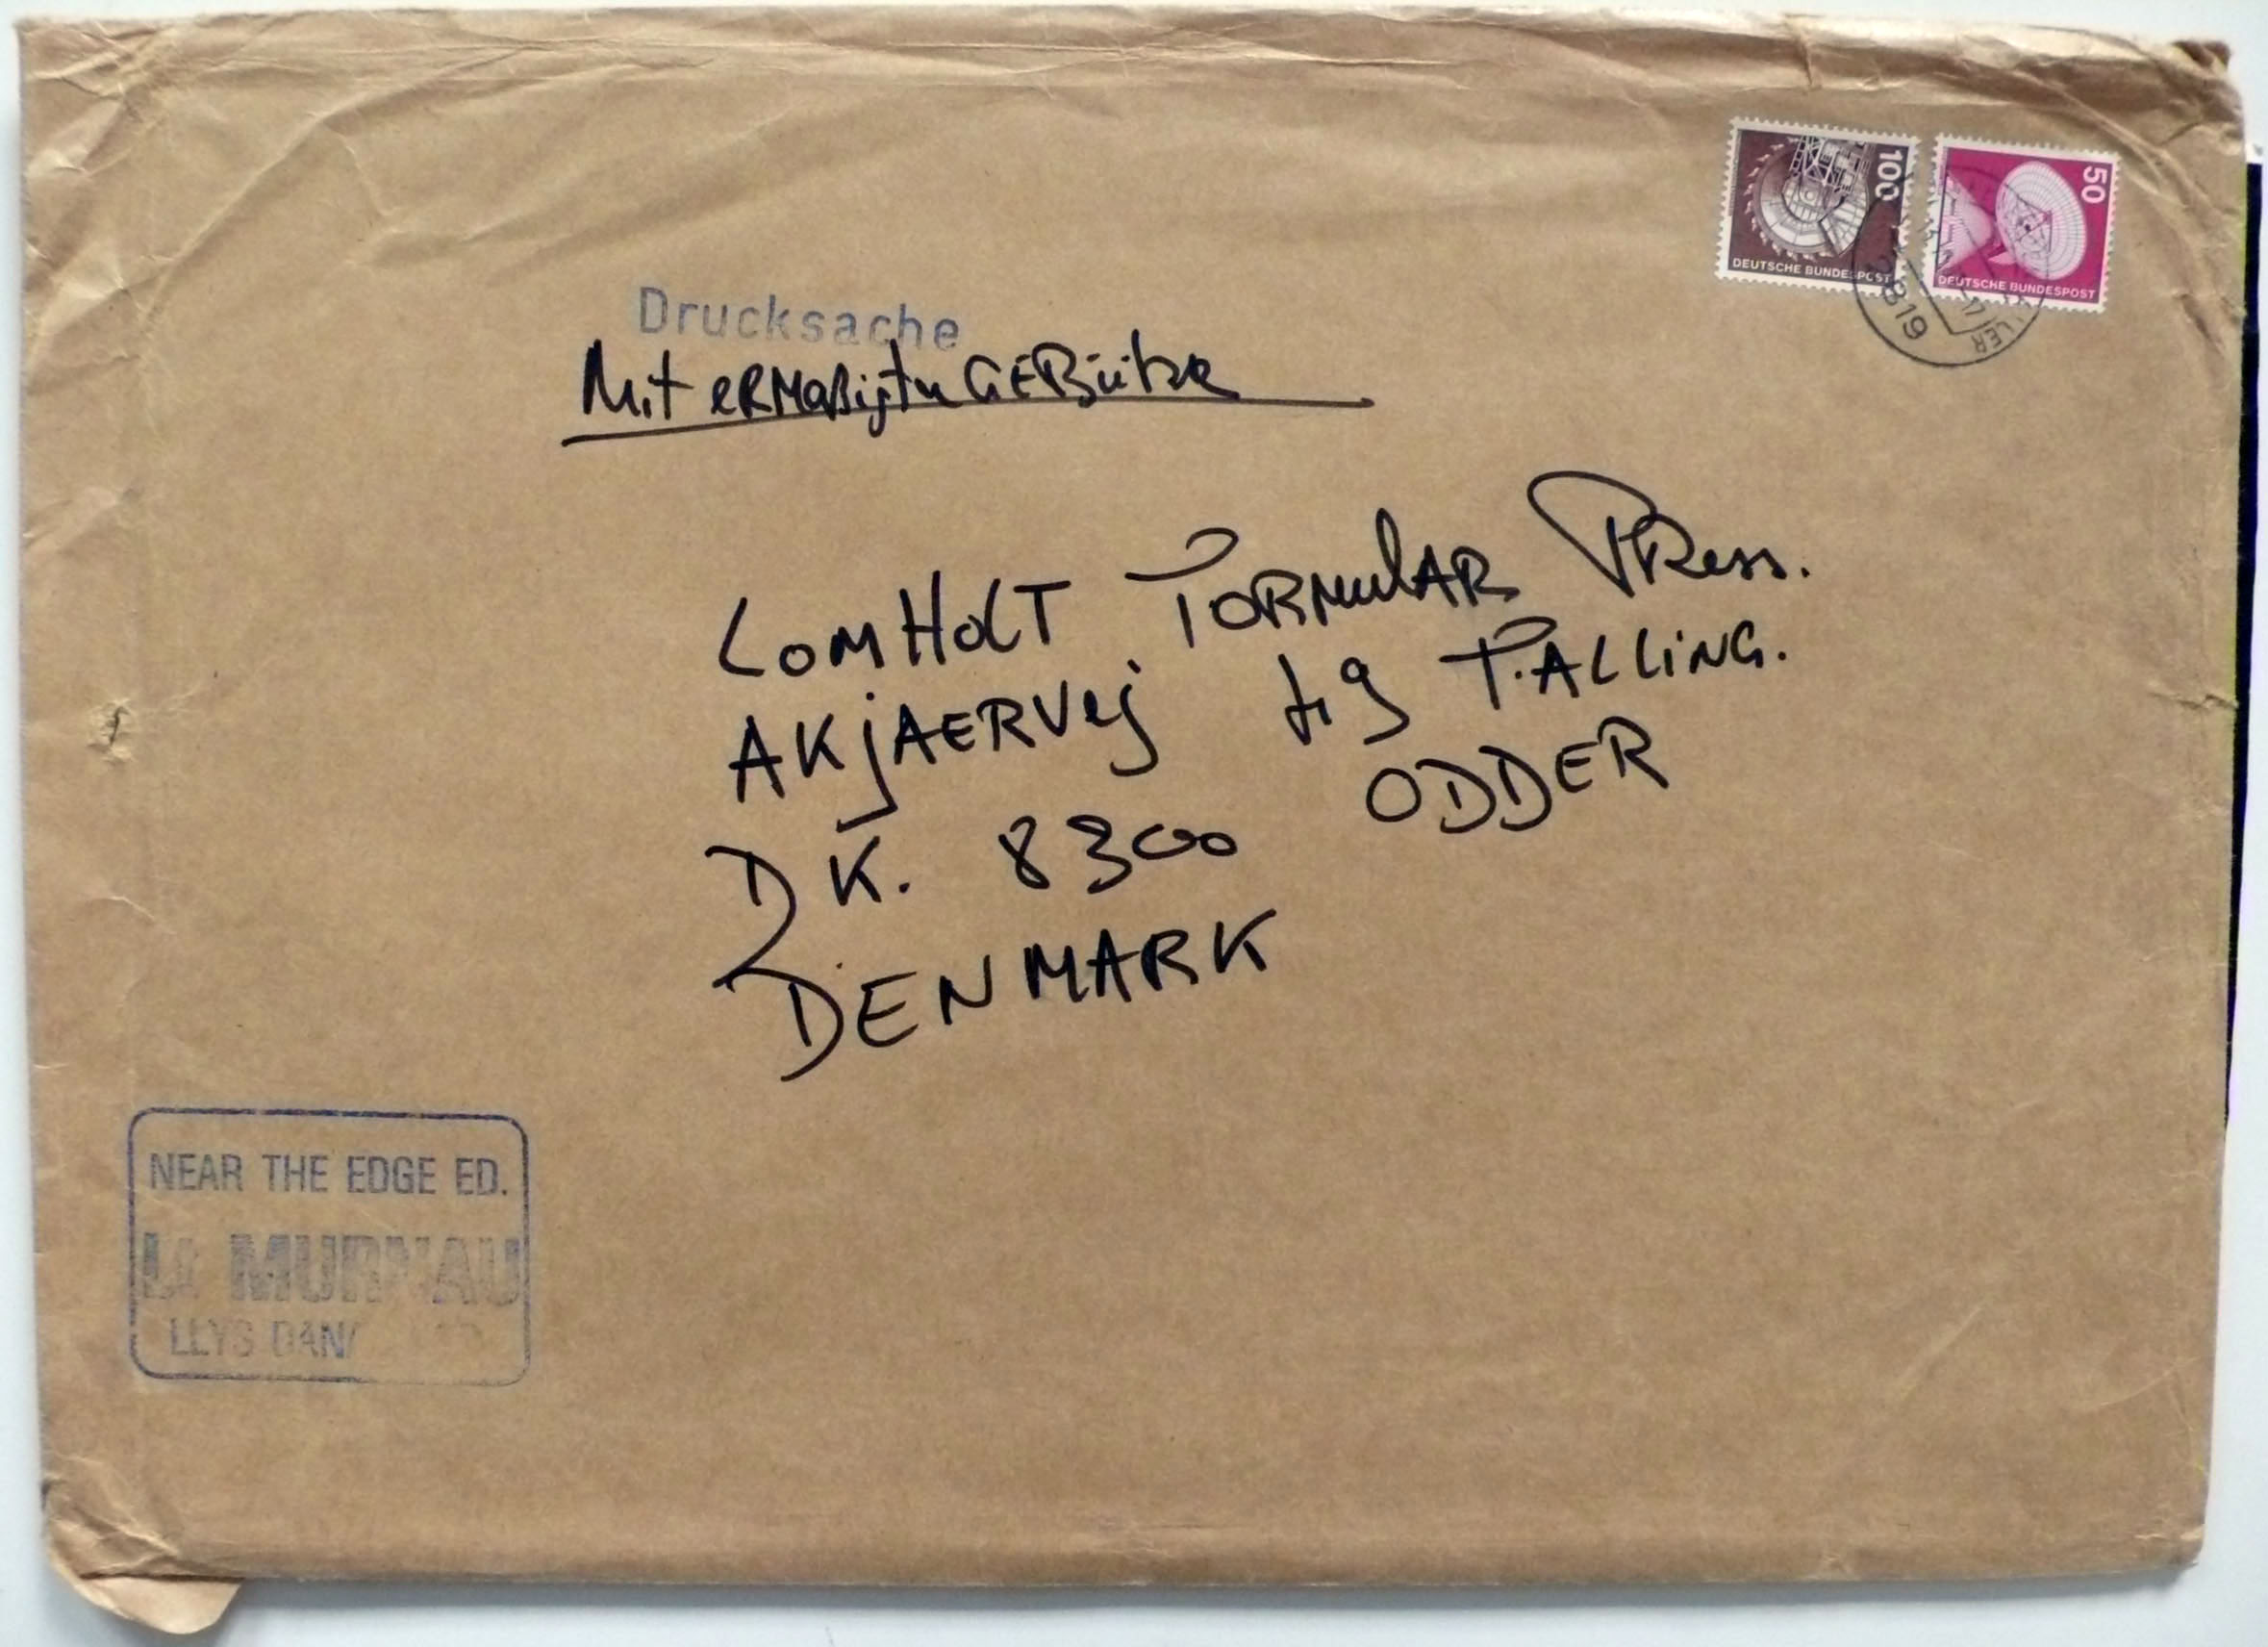 100
DEUTSCHE BUNDESPOST
50
DEUTSCHE BUNDESPOST
819
Drucksache
Mit ERMäßigten GEBühre
LOMHOLT FORMULAR PRess.
AKjAERVej FALLING.
DK. 8300 ODDER
DENMARK
NEAR THE EDGE ED.
MURNAU
LLYS